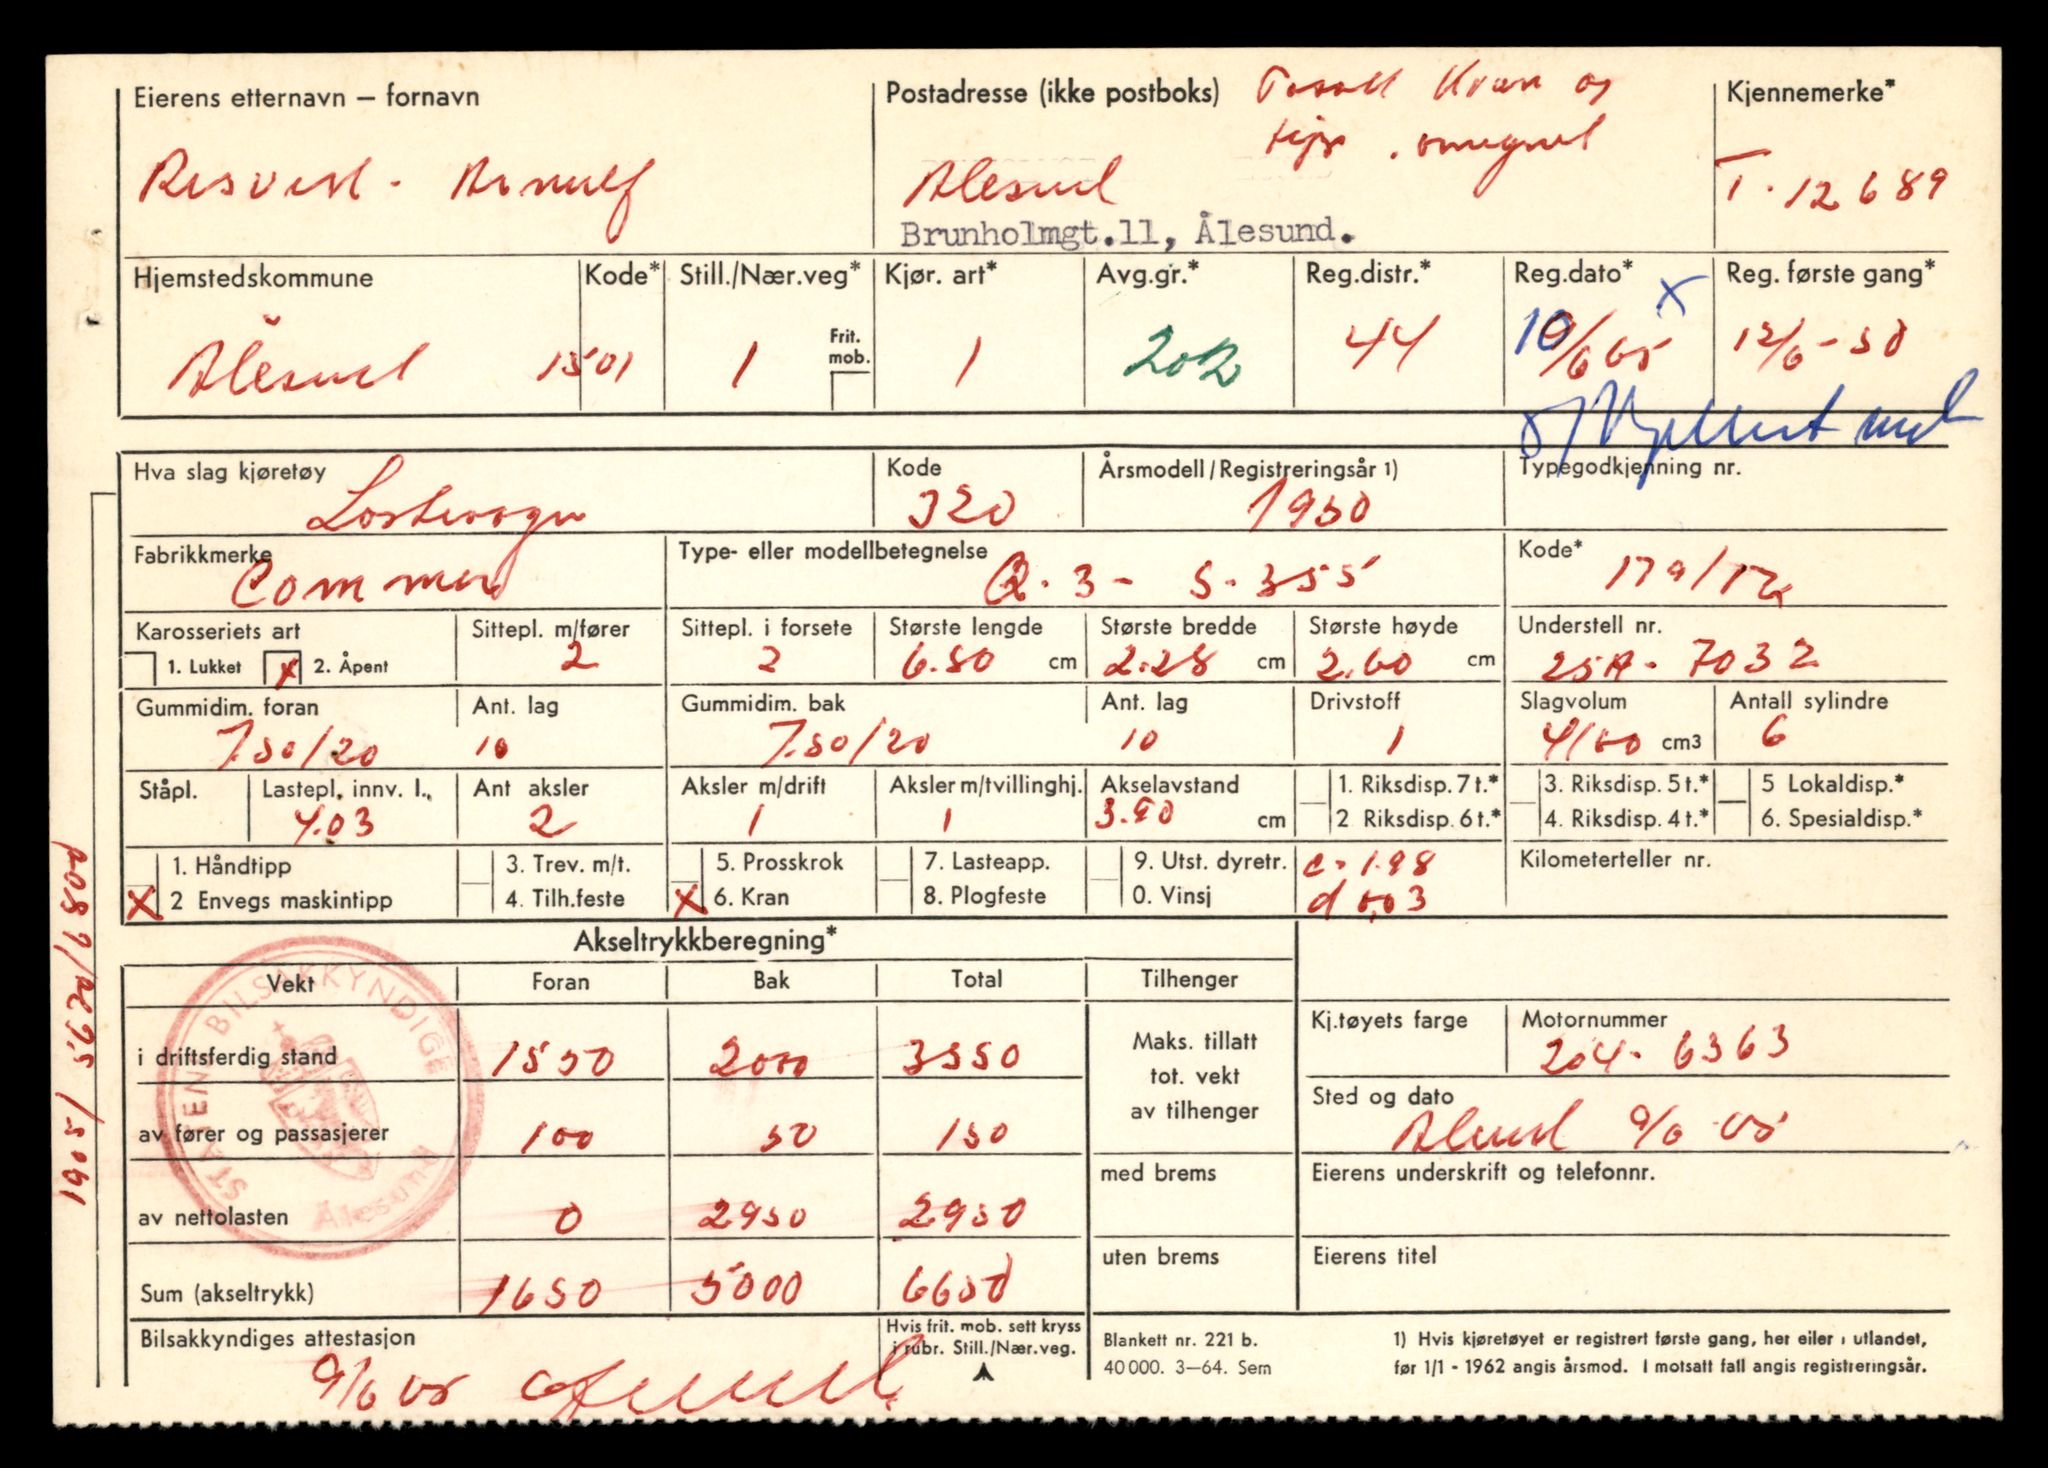 Eierens etternavn — fornavn
Postadresse (ikke postboks)
Kjennemerke*
Kran og
tipp
T. 12689
Ålesund
Brunholmgt.11, Ålesund.
Hjemstedskommune
Kode*
Still./Nær.veg*
Kjør. art*
Avg.gr.*
Reg.distr.*
Reg.dato*
Reg. første gang*
Ålesund
1501
1
Frit. mob.
1
202
44
10/6 65
x
12/6-50
Hva slag kjøretøy
Kode
Årsmodell/Registreringsår 1)
Typegodkjenning nr.
Lastevogn
320
1950
Fabrikkmerke
Type- eller modellbetegnelse
Kode*
Commer
Q. 3 - S. 355
179/
Karosseriets art
Sittepl. m/fører
Sittepl. i forsete
Største lengde
Største bredde
Største høyde
Understell nr.
1. Lukket
x
2. Åpent
2
2
6.50 cm
2.28 cm
2.60 cm
25A - 7032
Gummidim. foran
Ant. lag
Gummidim. bak
Ant. lag
Drivstoff
Slagvolum
Antall sylindre
7.50/20
10
7.50/20
10
1
4100 cm3
6
Ståpl.
Lastepl. innv. l.,
Ant aksler
Aksler m/drift
Aksler m/tvillinghj.
Akselavstand
1. Riksdisp. 7 t.*
3. Riksdisp. 5 t.*
5 Lokaldisp.*
4.03
2
1
1
3.90 cm
2 Riksdisp. 6 t.*
4. Riksdisp. 4 t.*
6. Spesialdisp.*
1. Håndtipp
3. Trev. m/t.
5. Prosskrok
7. Lasteapp.
9. Utst. dyretr.
c = 1.98
Kilometerteller nr.
x
2 Envegs maskintipp
4. Tilh.feste
x
6. Kran
8. Plogfeste
0. Vinsj
d 0,03
Akseltrykkberegning*
Vekt
Foran
Bak
Total
Tilhenger
i driftsferdig stand
1550
2000
3550
Maks. tillatt
tot. vekt
av tilhenger
Kj.tøyets farge
Motornummer
204 - 6363
av fører og passasjerer
100
50
150
Sted og dato
Ålesund 9/6 65
av nettolasten
0
2950
2950
med brems
Eierens underskrift og telefonnr.
Sum (akseltrykk)
1650
5000
6650
uten brems
Eierens titel
Bilsakkyndiges attestasjon
Hvis frit. mob. sett kryss
i rubr. Still./Nær.veg.
9/6 65
Blankett nr. 221 b.
40 000. 3—64. Sem
1) Hvis kjøretøyet er registrert første gang, her eller i utlandet,
før 1/1 - 1962 angis årsmod. I motsatt fall angis registreringsår.
STATENS BILSAKKYNDIGE
Ålesund